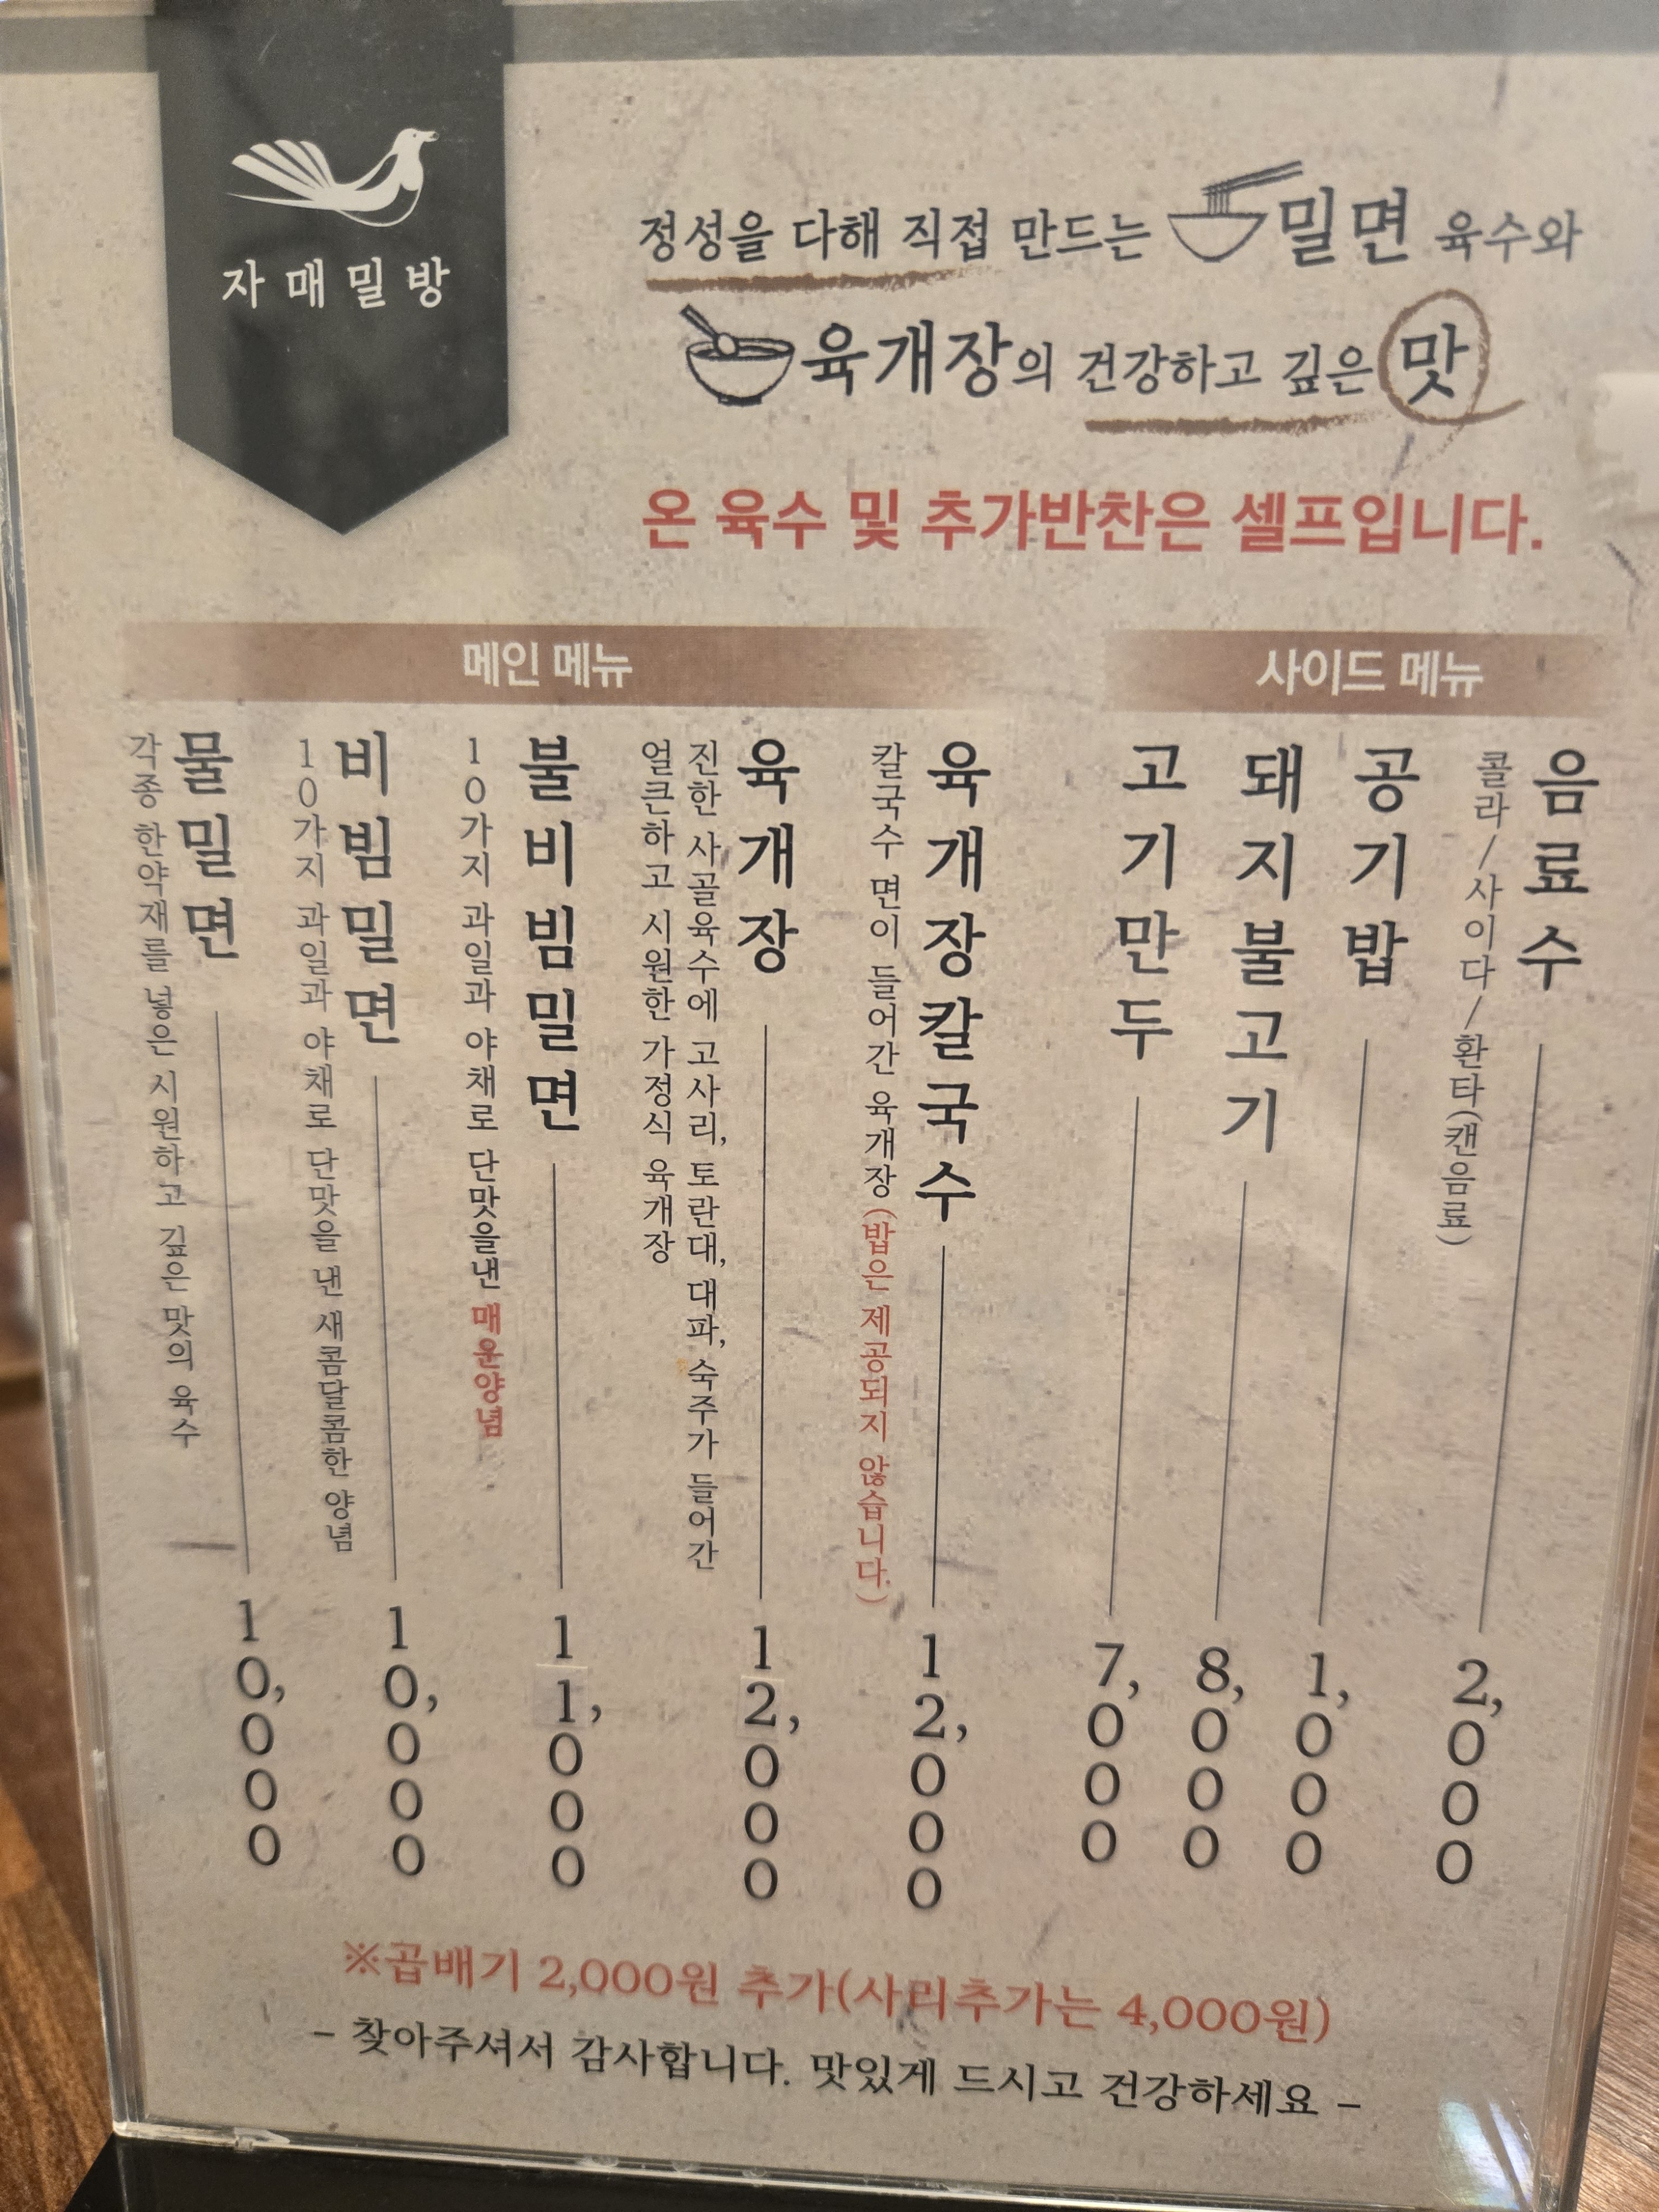 자매밀방
정성을 다해 직접 만드는 밀면 육수와
육개장의 건강하고 깊은 맛
온 육수 및 추가반찬은 셀프입니다.
메인 메뉴
물밀면 10,000
각종 한약재를 넣은 시원하고 깊은 맛의 육수
비빔밀면 10,000
10가지 과일과 야채로 단맛을 낸 새콤달콤한 양념
불비빔밀면 11,000
10가지 과일과 야채로 단맛을낸 매운양념
육개장 12,000
진한 사골육수에 고사리, 토란대, 대파, 숙주가 들어간
얼큰하고 시원한 가정식 육개장
육개장칼국수 12,000
칼국수 면이 들어간 육개장(밥은 제공되지 않습니다.)
사이드 메뉴
고기만두 7,000
돼지불고기 8,000
공기밥 1,000
음료수 2,000
콜라/사이다/환타(캔음료)
※곱배기 2,000원 추가(사리추가는 4,000원)
- 찾아주셔서 감사합니다. 맛있게 드시고 건강하세요 -